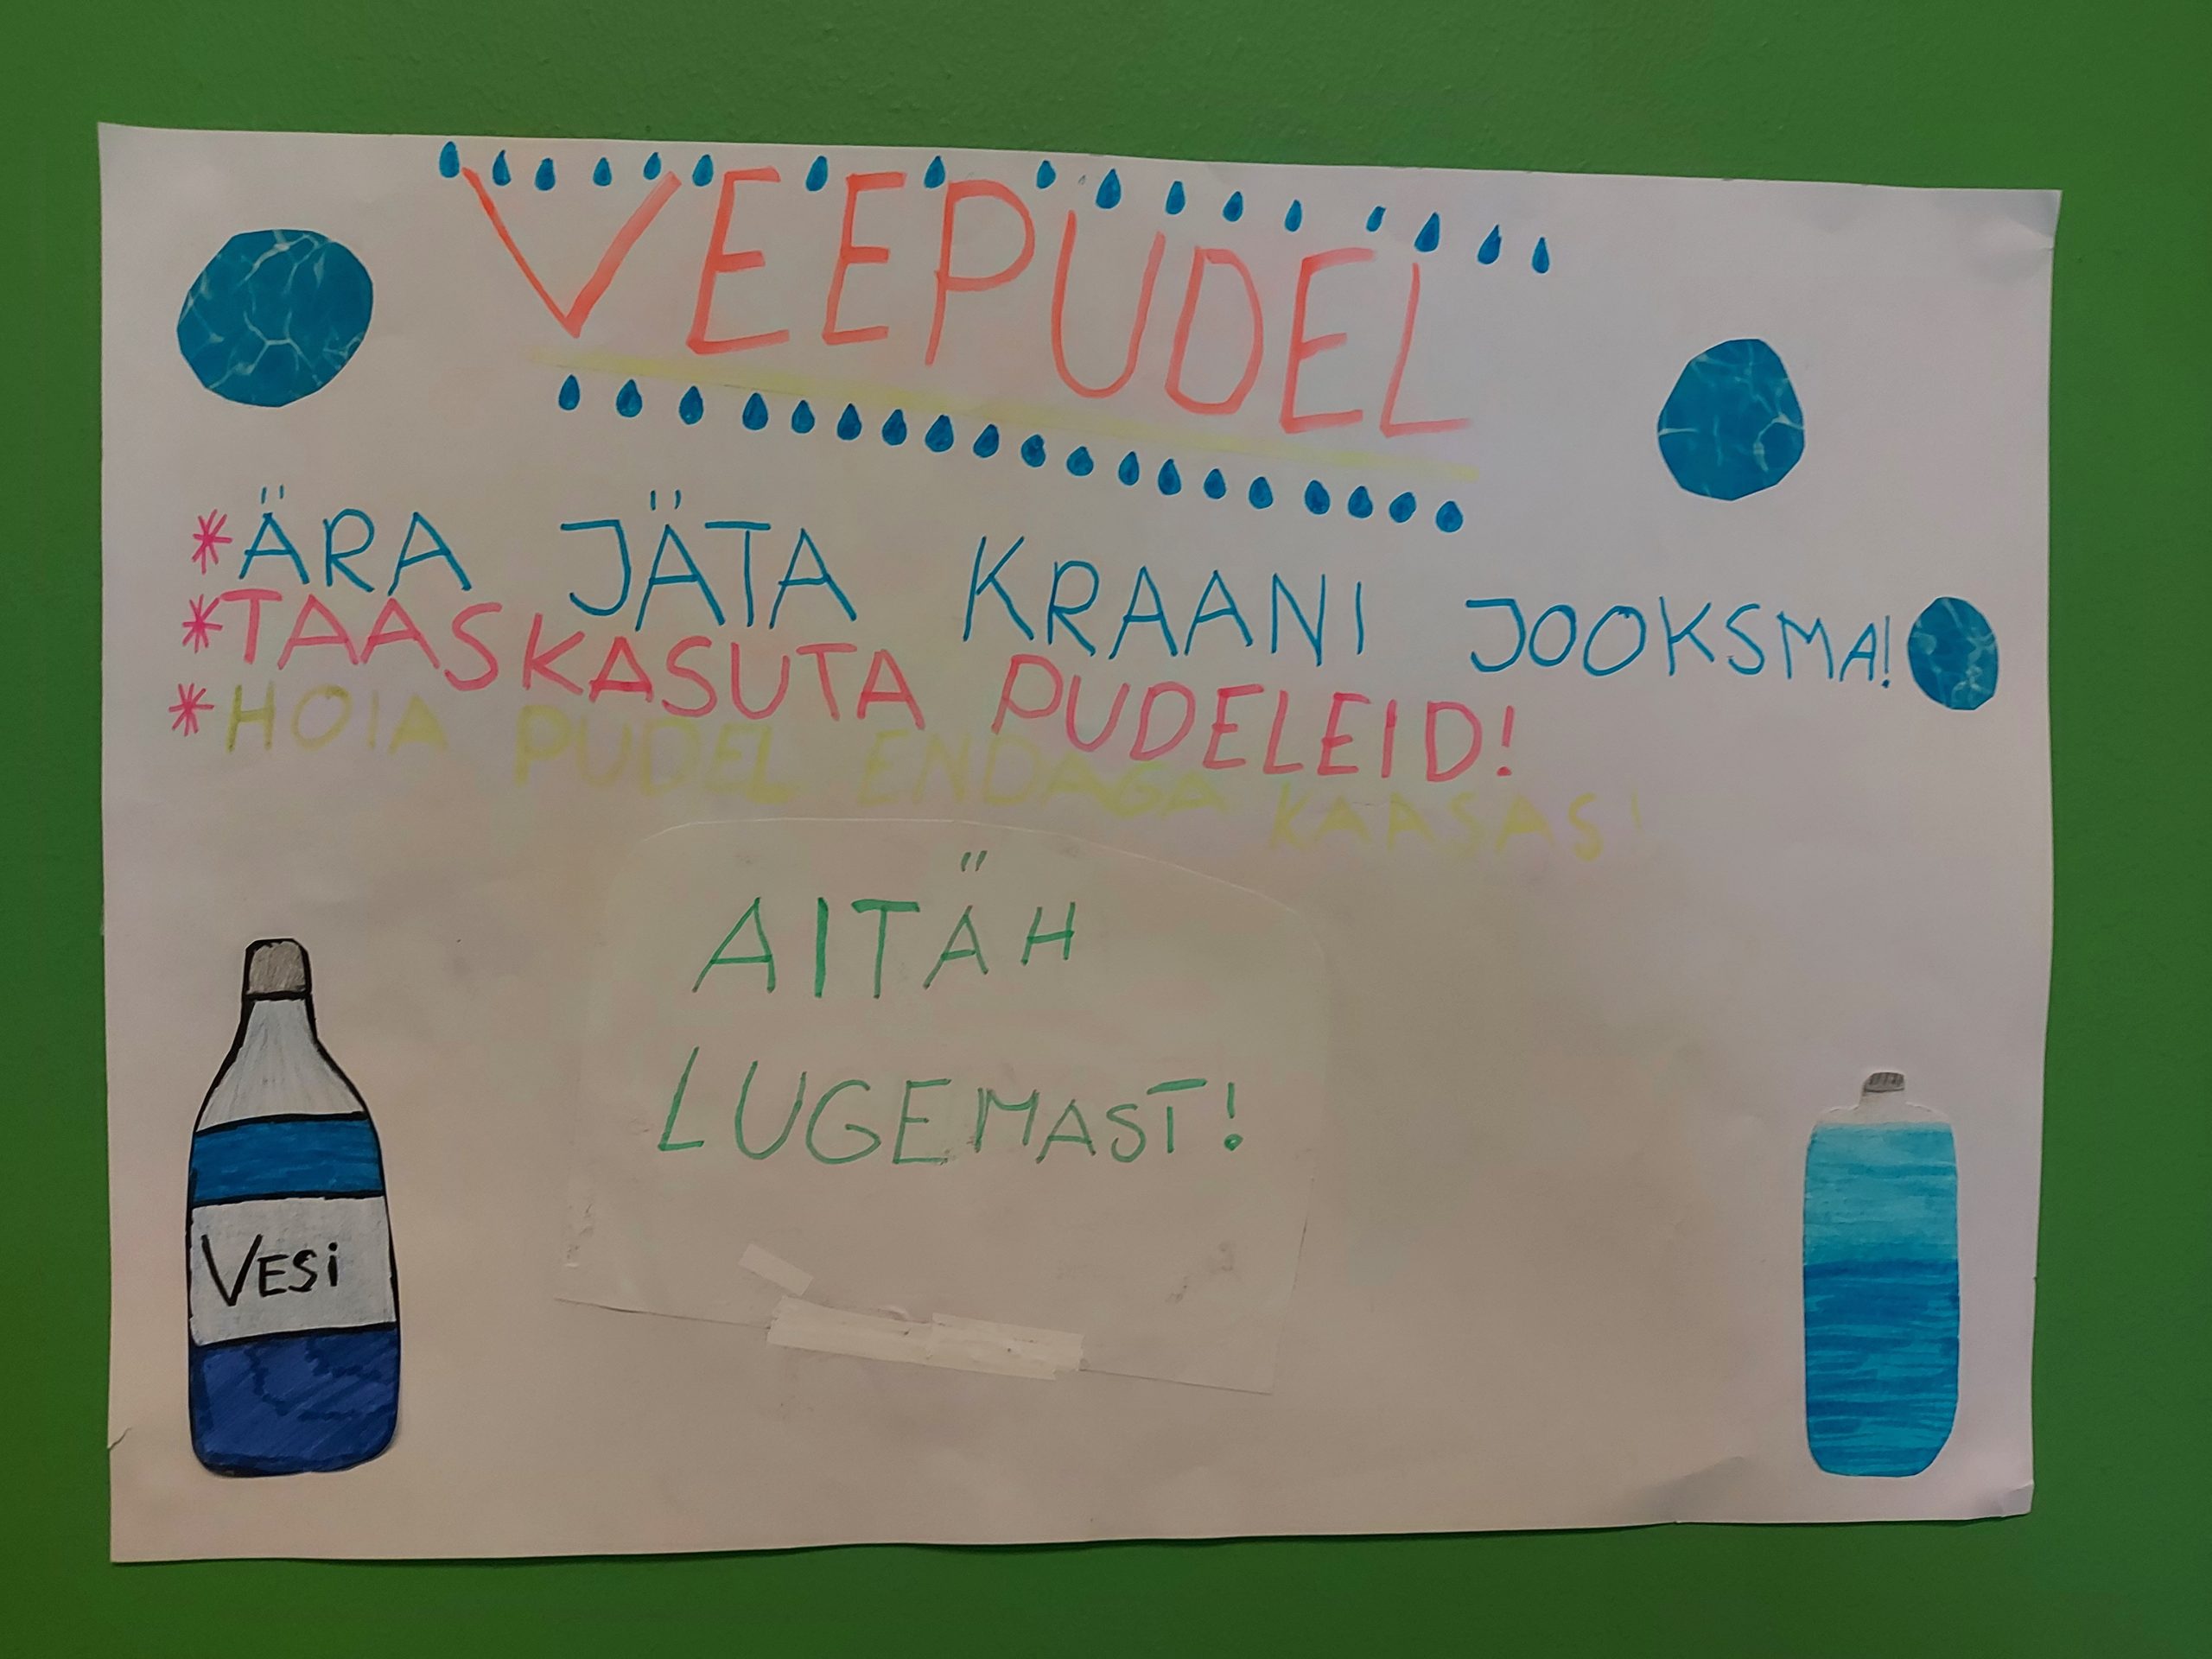 VEEPUDEL
*ÄRA JÄTA KRAANI JOOKSMA!
*TAASKASUTA PUDELEID!
*HOIA PUDEL ENDAGA KAASAS!
AITÄH
LUGEMAST!
VESi